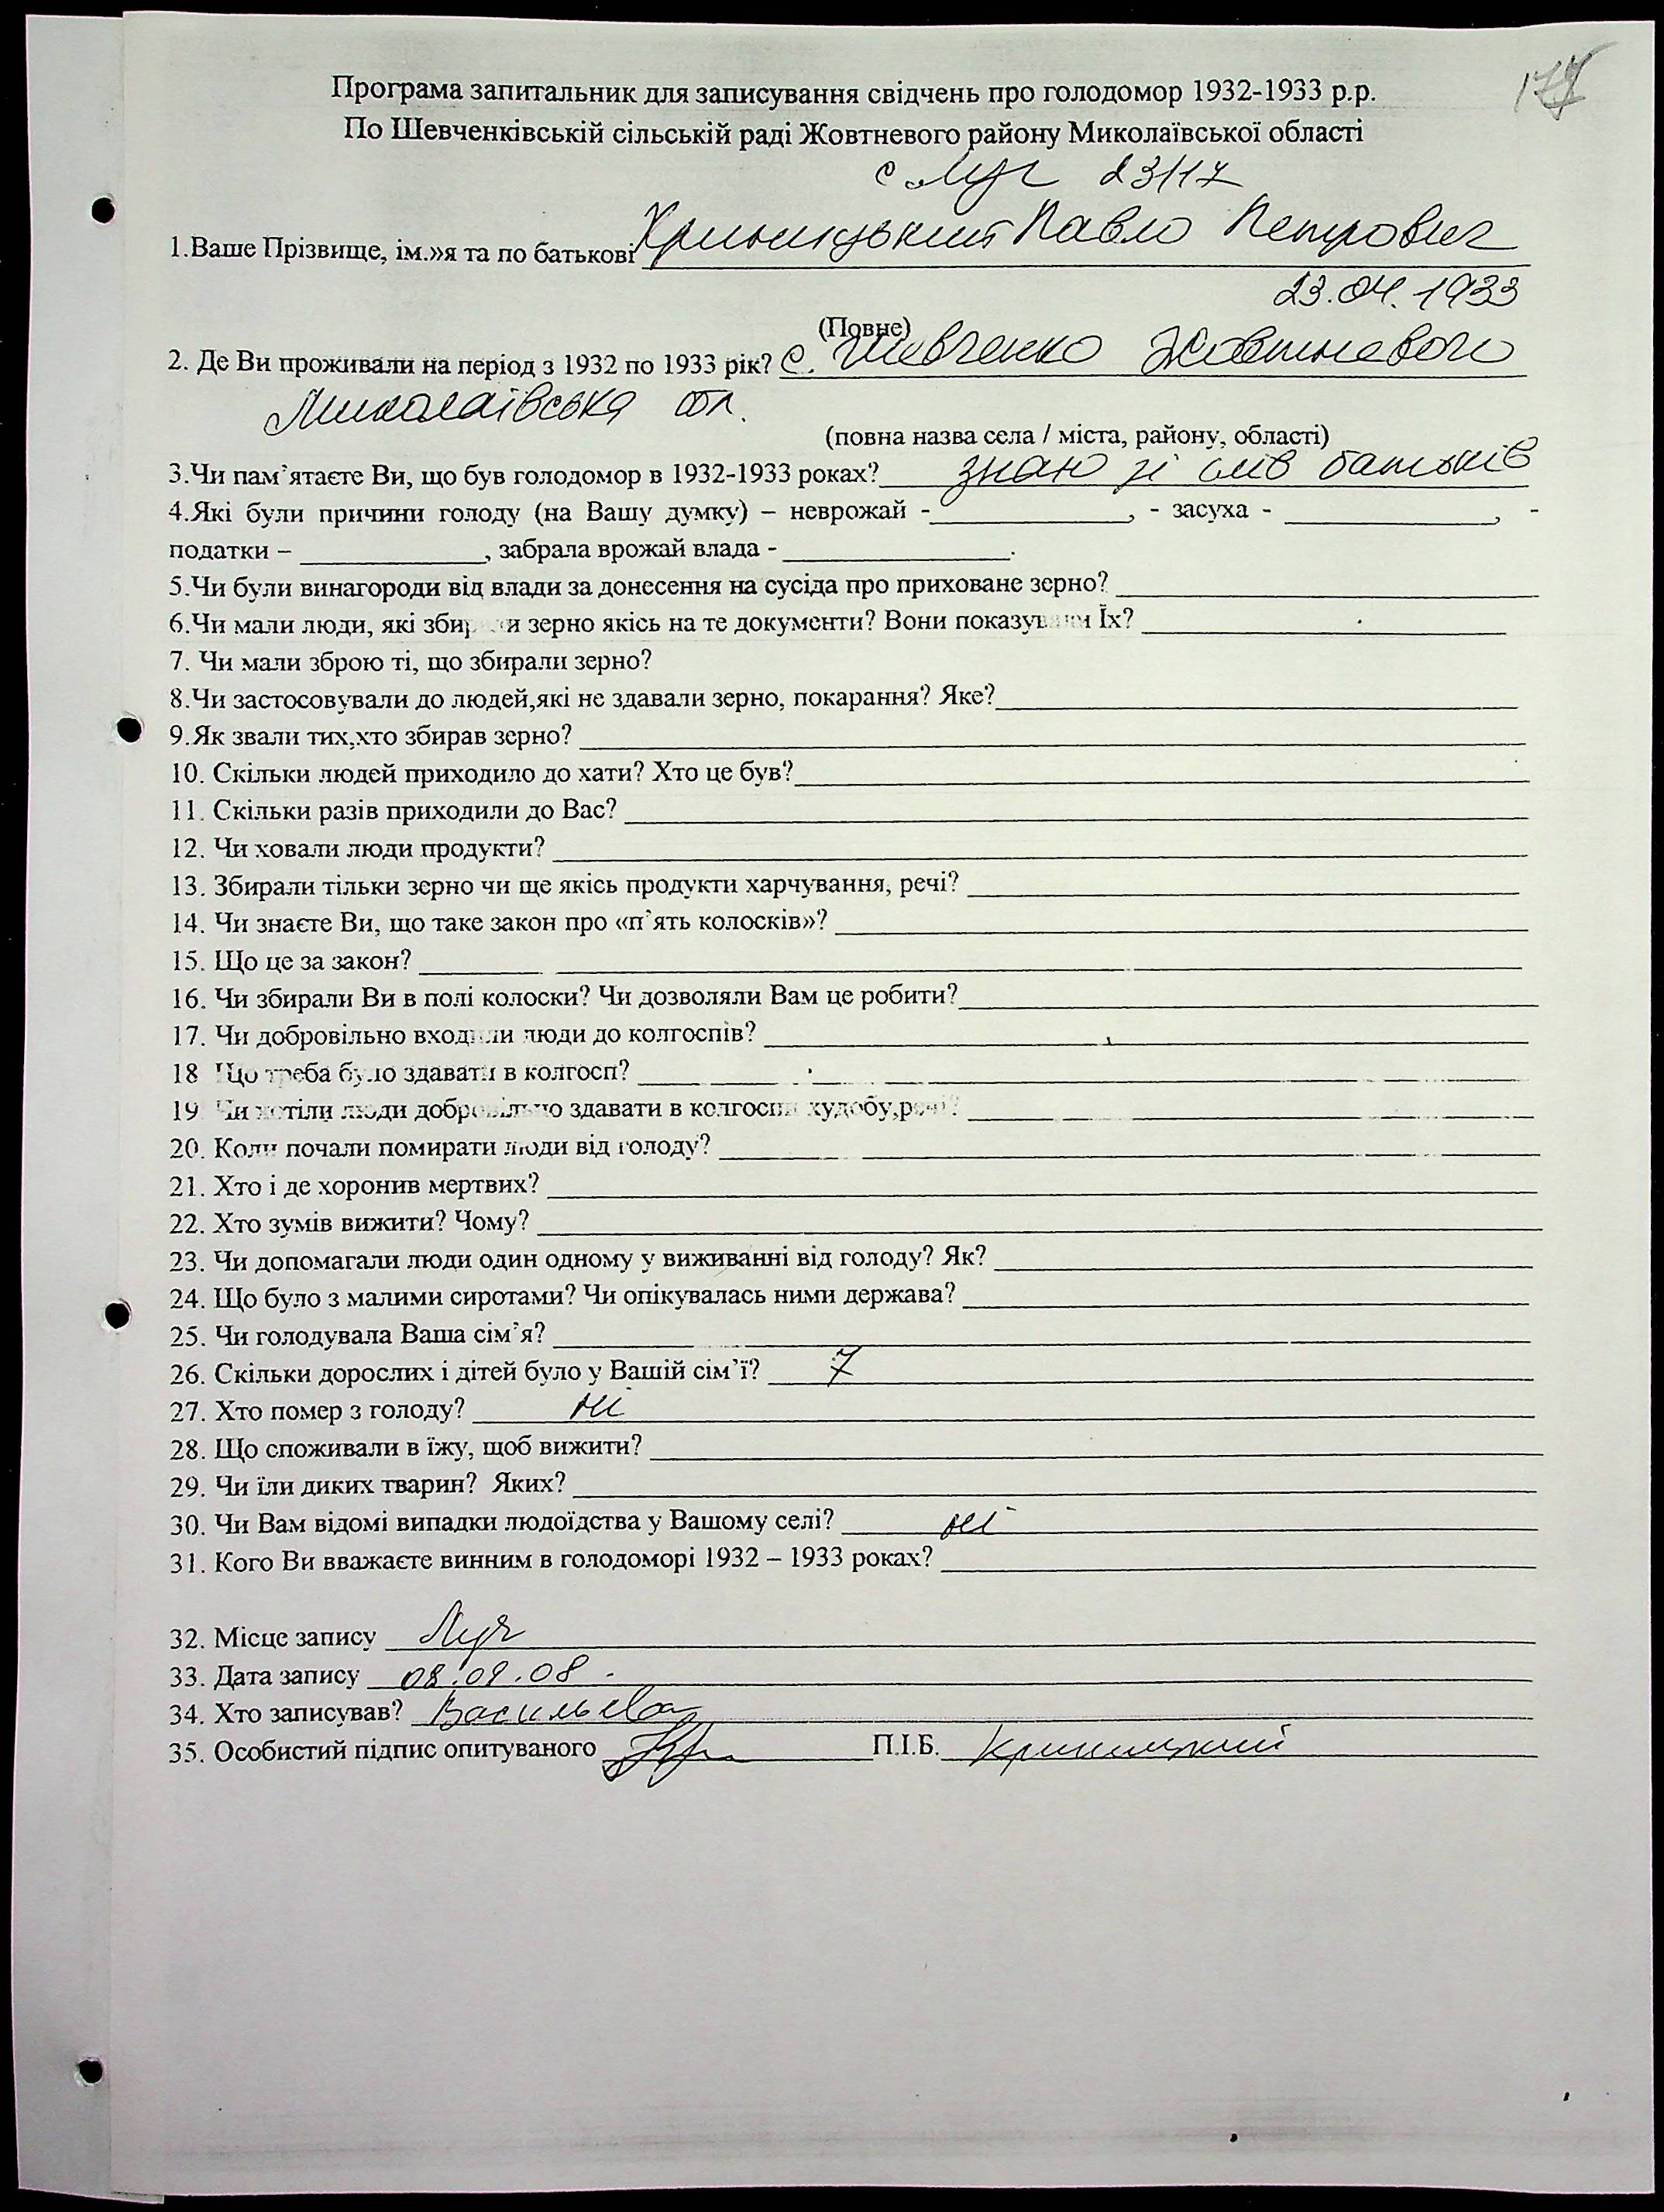 Програма запитальник для записування свідчень про голодомор 1932-1933 р.р.
По Шевченківській сільській раді Жовтневого району Миколаївської області
с Луч 23/17
1.Ваше Прізвище, ім.»я та по батькові Криницький Павло Петрович
23.04.1933
(Повне)
2. Де Ви проживали на період з 1932 по 1933 рік? с. Шевченко Жовтневого
Миколаївська обл.
(повна назва села / міста, району, області)
3.Чи пам'ятаєте Ви, що був голодомор в 1932-1933 роках? знаю зі слів батьків
4.Які були причини голоду (на Вашу думку) – неврожай -______, - засуха - ______, -
податки – ______, забрала врожай влада - ______.
5.Чи були винагороди від влади за донесення на сусіда про приховане зерно?
6.Чи мали люди, які збирали зерно якісь на те документи? Вони показували Їх?
7. Чи мали зброю ті, що збирали зерно?
8.Чи застосовували до людей,які не здавали зерно, покарання? Яке?
9.Як звали тих,хто збирав зерно?
10. Скільки людей приходило до хати? Хто це був?
11. Скільки разів приходили до Вас?
12. Чи ховали люди продукти?
13. Збирали тільки зерно чи ще якісь продукти харчування, речі?
14. Чи знаєте Ви, що таке закон про «п'ять колосків»?
15. Що це за закон?
16. Чи збирали Ви в полі колоски? Чи дозволяли Вам це робити?
17. Чи добровільно входили люди до колгоспів?
18 Що треба було здавати в колгосп?
19 Чи хотіли люди добровільно здавати в колгоспи худобу,речі?
20. Коли почали помирати люди від голоду?
21. Хто і де хоронив мертвих?
22. Хто зумів вижити? Чому?
23. Чи допомагали люди один одному у виживанні від голоду? Як?
24. Що було з малими сиротами? Чи опікувалась ними держава?
25. Чи голодувала Ваша сім'я?
26. Скільки дорослих і дітей було у Вашій сім'ї? 7
27. Хто помер з голоду? ні
28. Що споживали в їжу, щоб вижити?
29. Чи їли диких тварин? Яких?
30. Чи Вам відомі випадки людоїдства у Вашому селі? ні
31. Кого Ви вважаєте винним в голодоморі 1932 – 1933 роках?
32. Місце запису Луч
33. Дата запису 08.09.08.
34. Хто записував? Васильєва
35. Особистий підпис опитуваного П.І.Б. Криницький